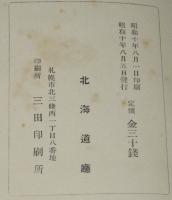 昭和十年八月一日印刷
昭和十年八月五日發行
定價 金三十錢
北海道廳
札幌市北三條西一丁目八番地
印刷所 三田印刷所